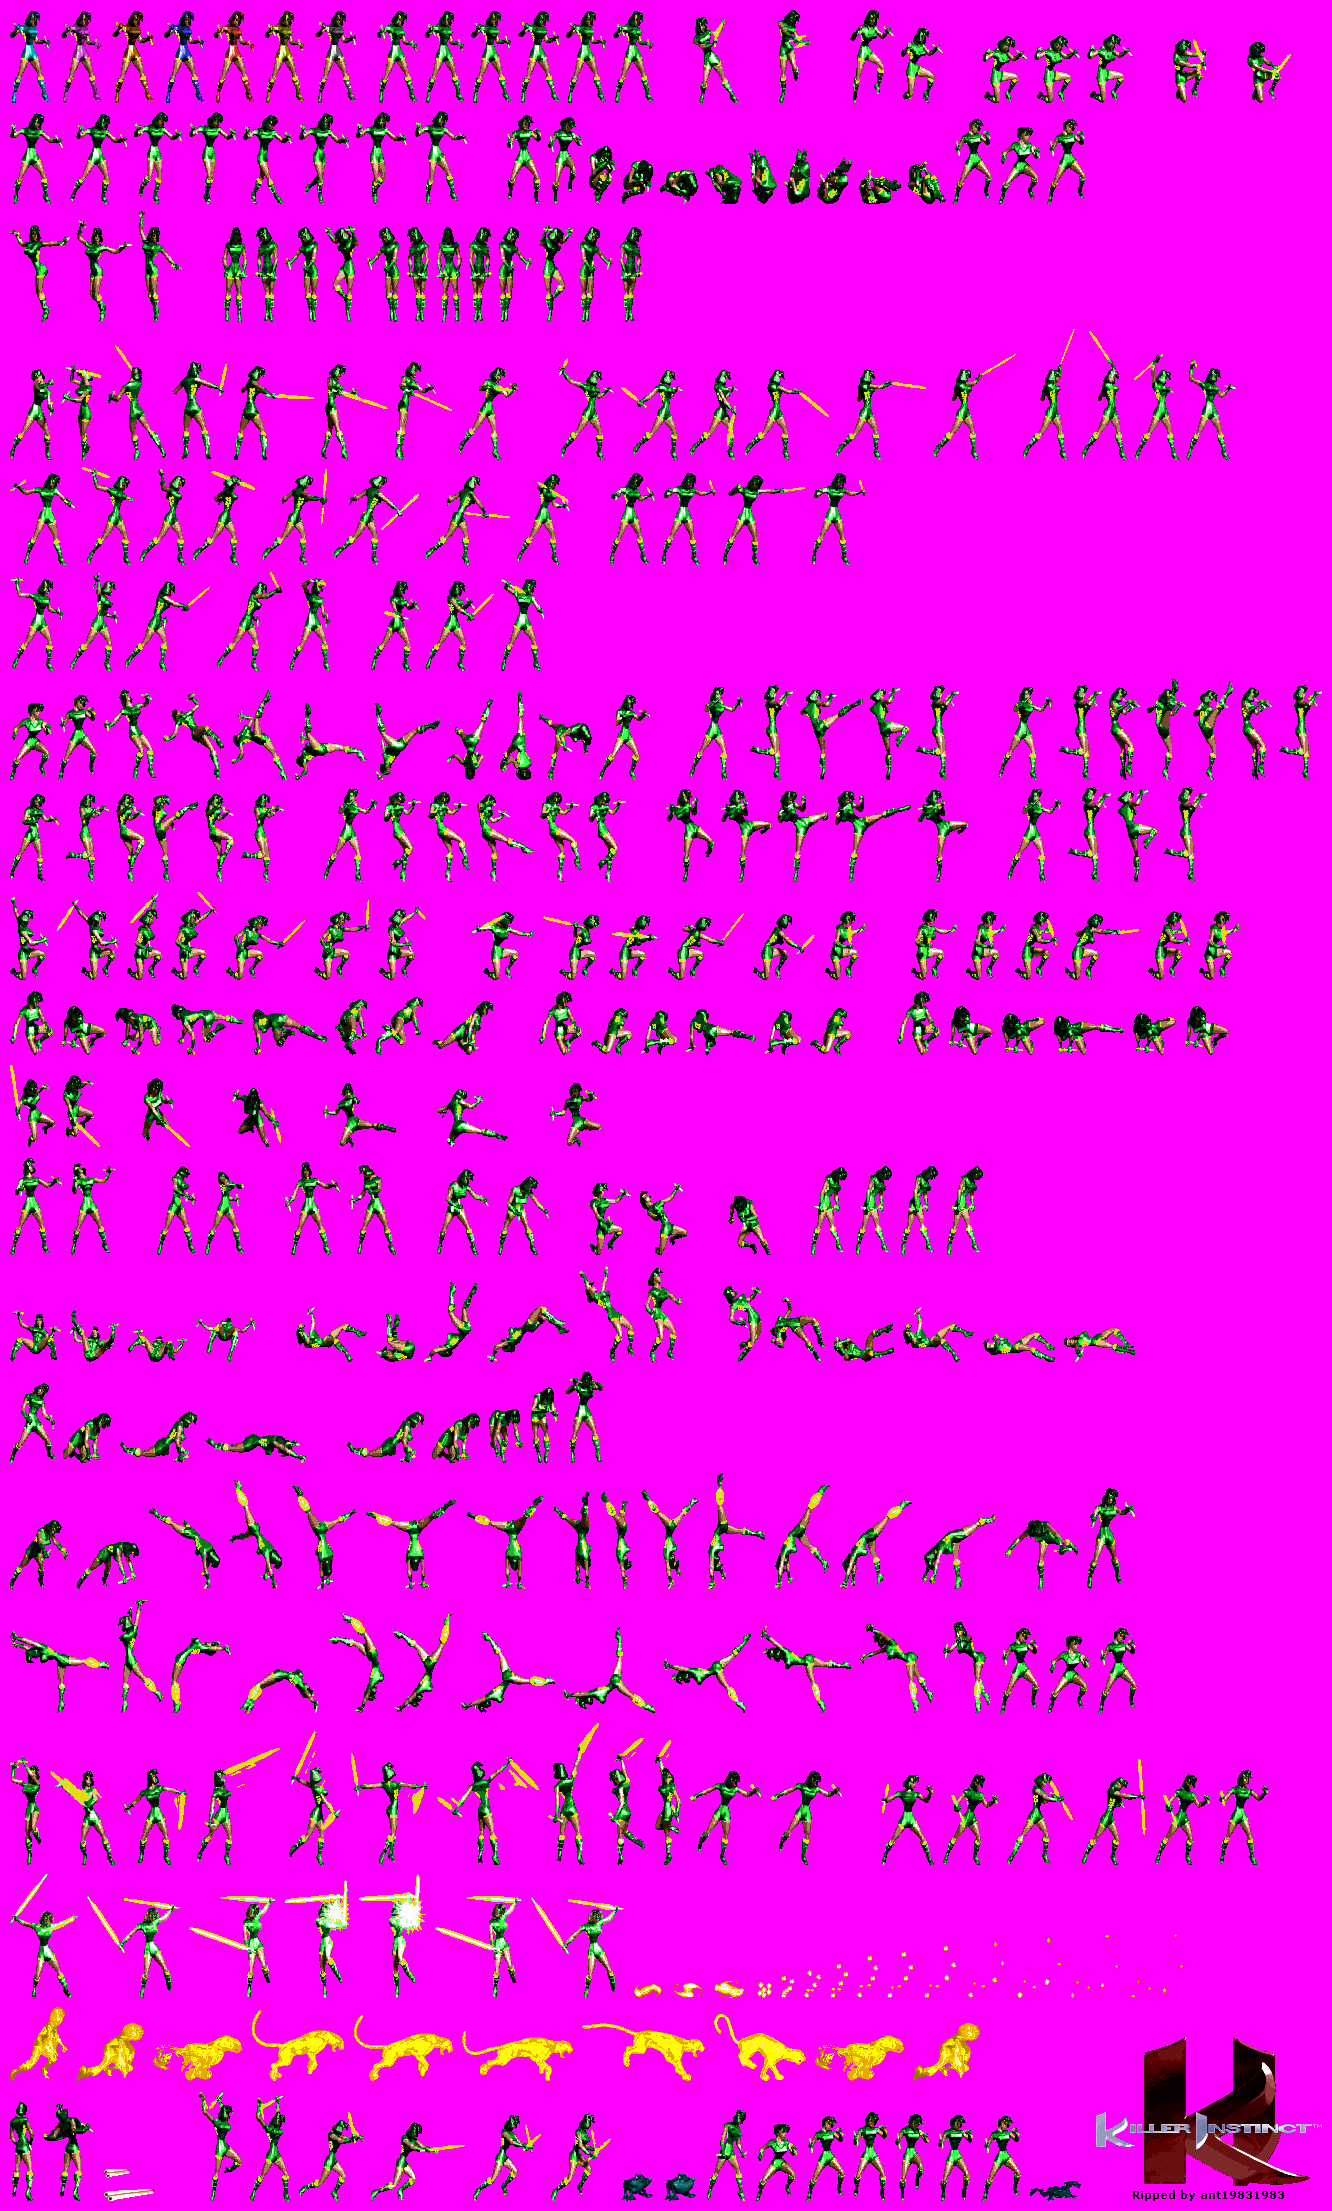 KILLER INSTINCT™
Ripped by ant19831983